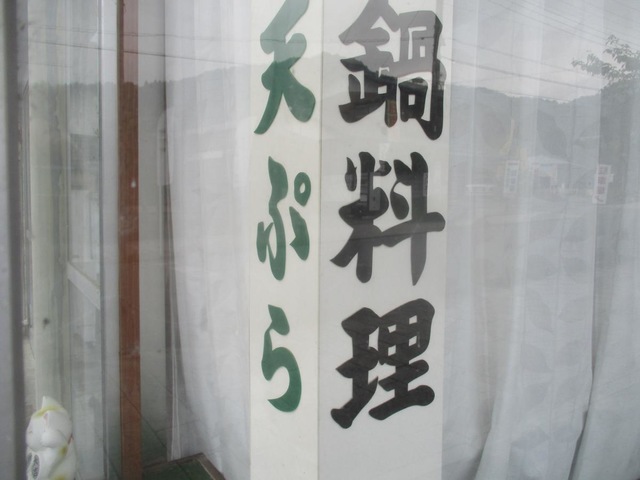 鍋料理
天ぷら